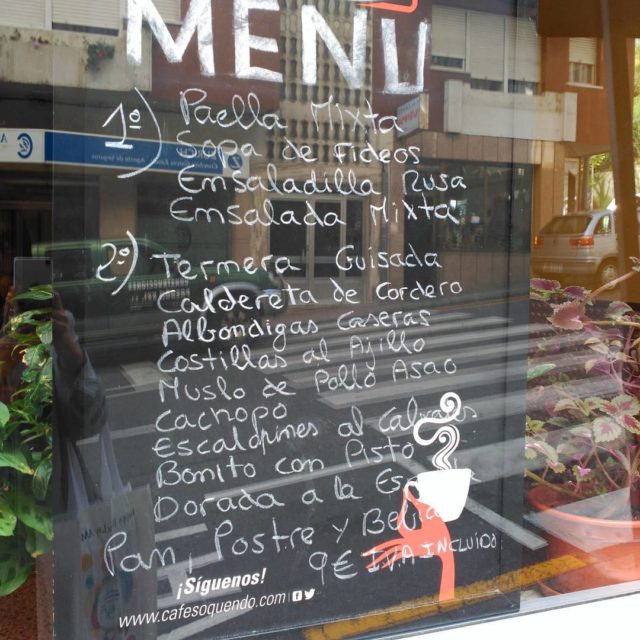 MENÚ
1º) Paella Mixta
Sopa de Fideos
Ensaladilla Rusa
Ensalada Mixta
2º) Ternera Guisada
Caldereta de Cordero
Albondigas Caseras
Costillas al Ajillo
Muslo de Pollo Asao
Cachopo
Escalopines al Cabrales
Bonito con Pisto
Dorada a la
Pan, Postre y Bebida
9€ IVA INCLUIDO
¡Síguenos!
www.cafesoquendo.com